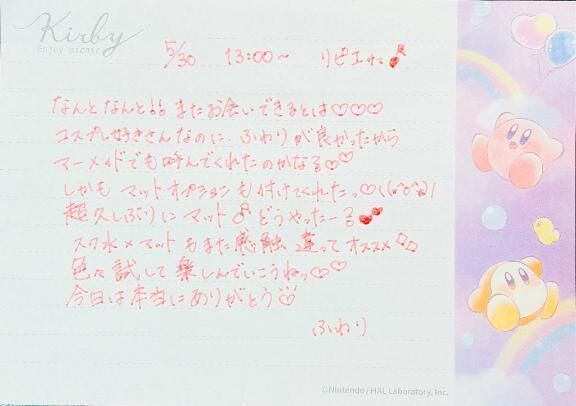 Kirby
Enjoy picnic
5/30 13:00〜 リピエサマ♪
なんとなんと!! またお会いできるとは♡♡♡
コスプレ好きさんなのに、ふわりが良かったから
マーメイドでも呼んでくれたのかなる♡♡
しかも マットオプションも付けてくれたっ♡
超久しぶりにマット どうやったーる
スク水×マットもまた感触違ってオススメ
色々試して楽しんでいこうねっ♡♡
今日は本当にありがとう
ふわり
©Nintendo / HAL Laboratory, Inc.